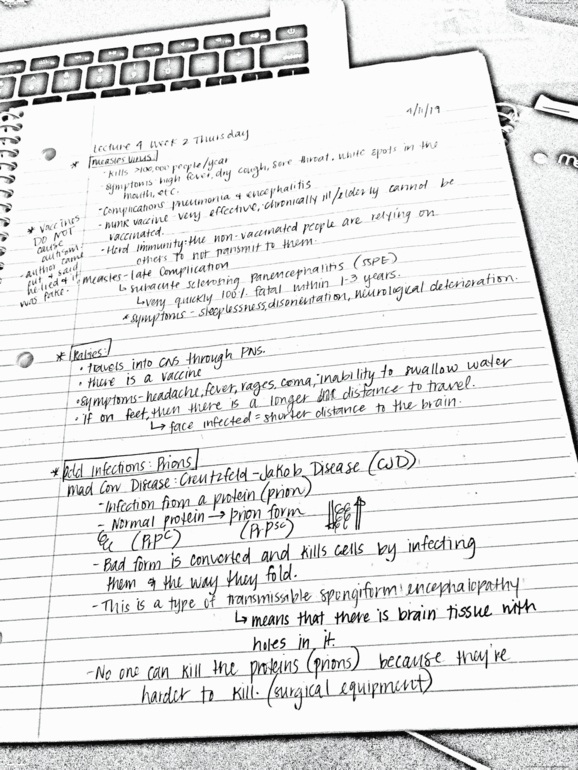 9/11/19
Lecture 4 Week 2 Thursday
* Measles Virus
- Kills >100,000 people/year
- Symptoms high fever, dry cough, sore throat, white spots in the
mouth, etc.
- Complications pneumonia & encephalitis
vaccine - very effective, chronically ill/elderly cannot be
vaccinated.
- Herd Immunity: the non-vaccinated people are relying on
others to not transmit to them.
* vaccines
DO NOT
cause
autism
- author came
out & said
he lied & it
was fake.
measles - late complication
↳ subacute sclerosing Panencephalitis (SSPE)
↳ very quickly 100% fatal within 1-3 years.
* symptoms - sleeplessness, disorientation, neurological deterioration.
* Rabies:
• travels into CNS through PNS.
• there is a vaccine
• symptoms - headache, fever, rages, coma, inability to swallow water
• if on feet, then there is a longer distance to travel.
↳ face infected = shorter distance to the brain.
* Odd Infections: Prions
Mad Cow Disease: Creutzfeld-Jakob Disease (CJD)
- Infection from a protein (prion)
- Normal protein → prion form
(PrPc) (PrPsc)
- Bad form is converted and kills cells by infecting
them & the way they fold.
- This is a type of transmissible spongiform encephalopathy
↳ means that there is brain tissue with
holes in it.
- No one can kill the proteins (prions) because they're
harder to kill. (surgical equipment)